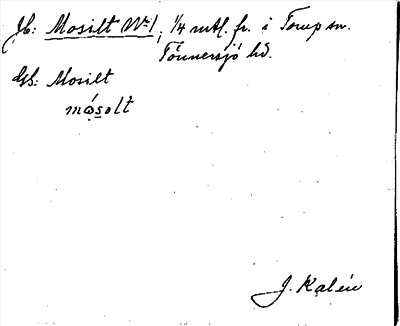 Jb: Mosilt No 1, 1/4 mtl. fr. i Torup sn.
Tönnersjö hd.
Gsb: Mosilt
måsolt
J. Kalén